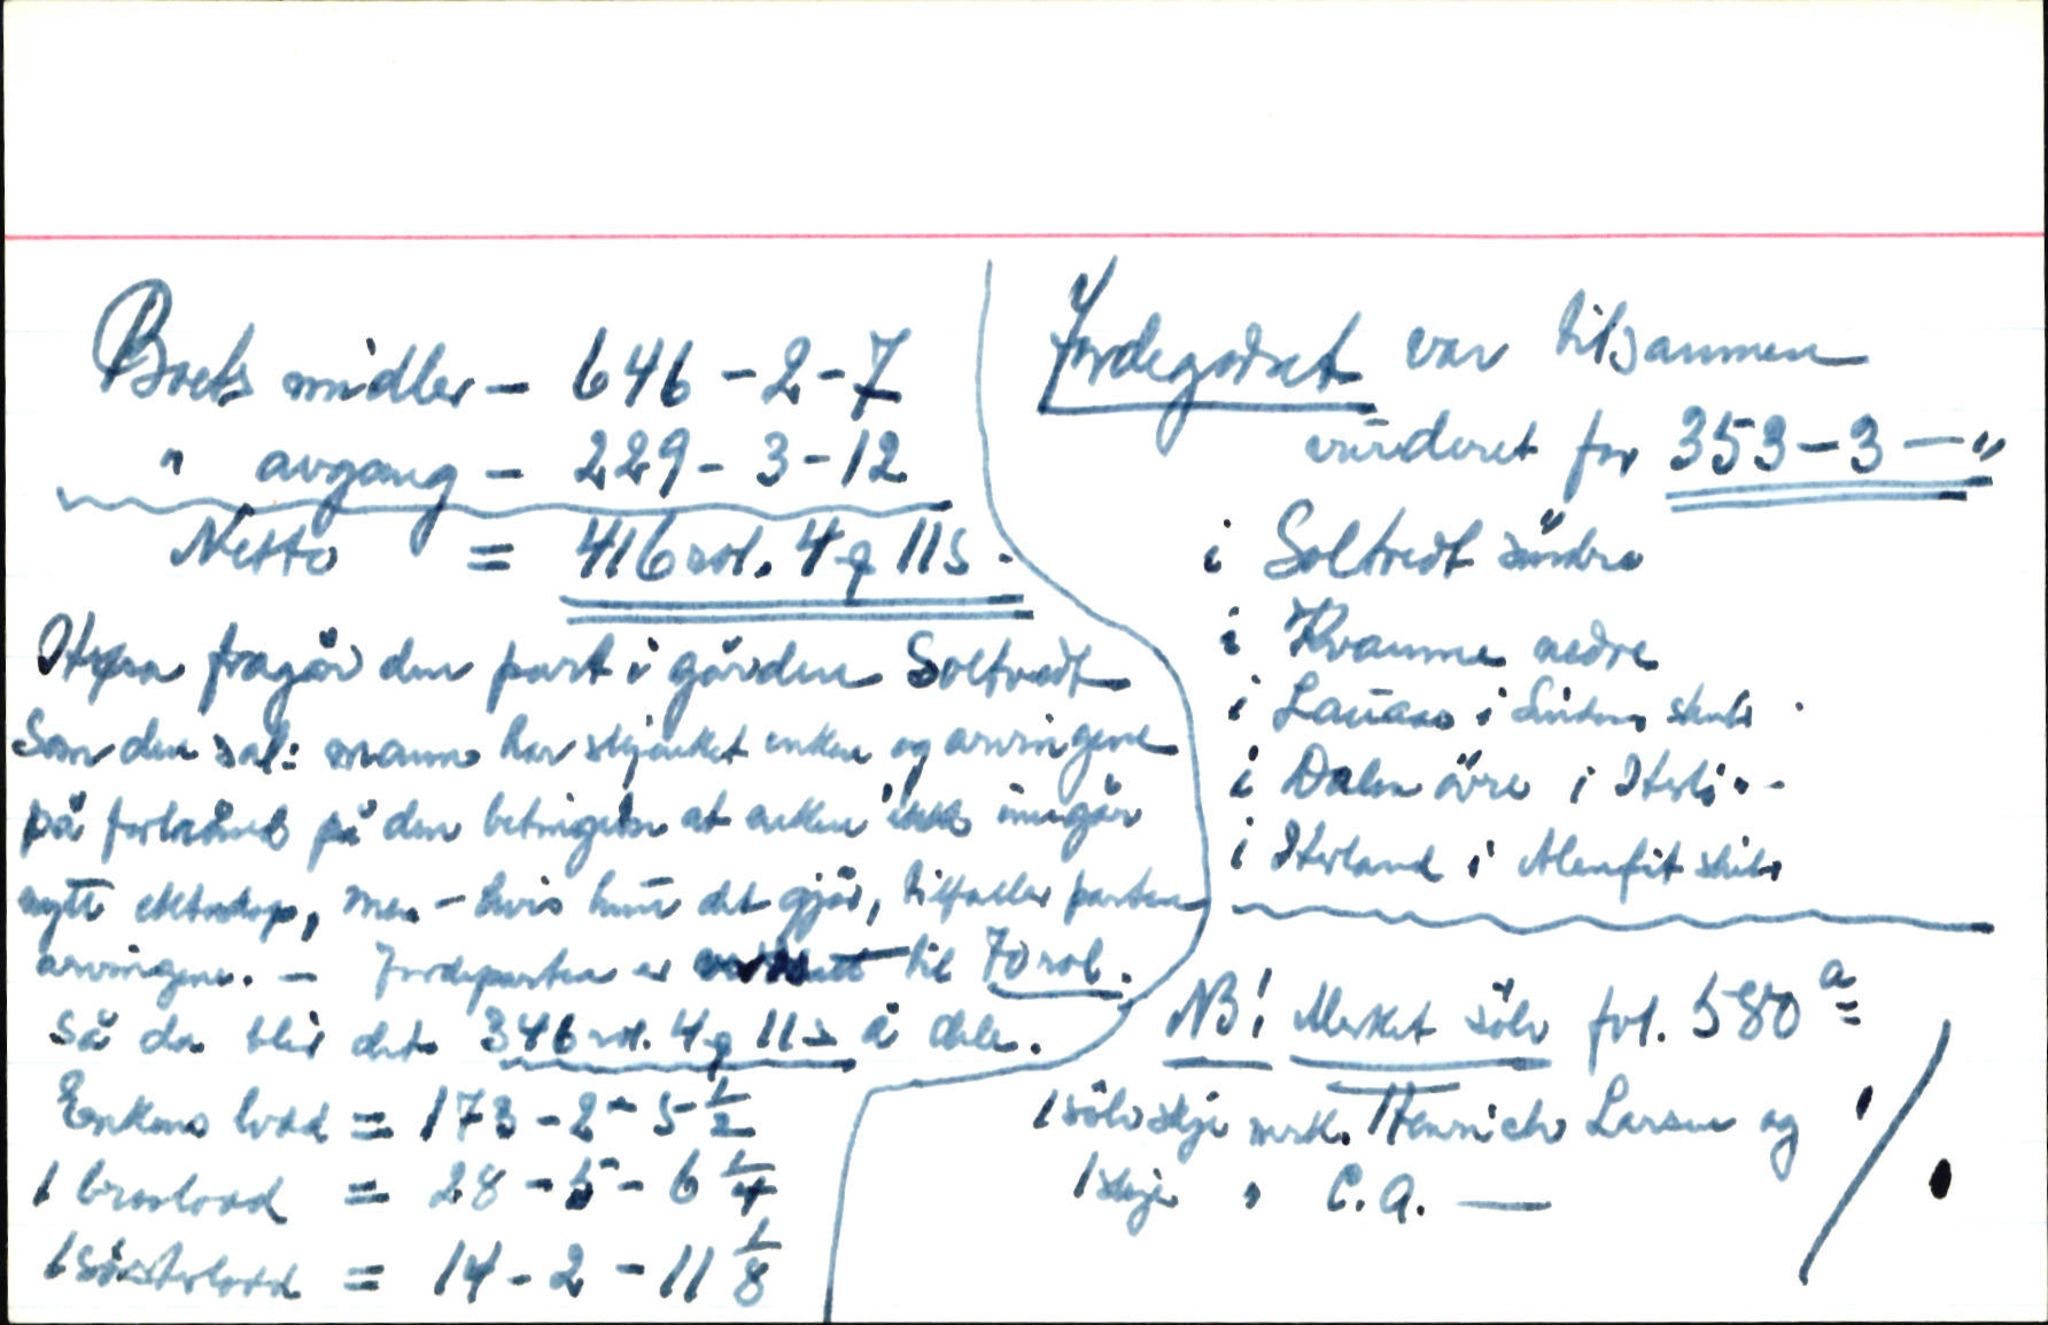 Boets midler – 646 – 2 – 7
" avgang – 229 – 3 – 12
Netto = 416 rdl. 4 q 11 s.
fragår den part i gården Soltvedt
Som den sal: mann har skjenket enken og arvingene
på den betingelse at enken ikke inngår
nytt ekteskap, men – hvis hun det gjör, tilfaller parten
arvingene. – Jordeparten er til 70 rdl.
Så da blir det 346 rdl. 4 q 11 s å dele.
Enkens lodd = 173 – 2 – 5 ½
1 brorlodd = 28 – 5 – 6 ¼
1 sösterlodd = 14 – 2 – 11 ⅛
Jordegodset var tilsammen
vurderet for 353 – 3 – "
i Soltvedt söndre
i Kvamme nedre
i Lauaas i Lindaas skibr
i Dalen övre i
i Hterland i Alenfit skibr
NB! Merket sölv fol. 580 a
1 sölvskje mrk. Henrich Larsen og
1 skje " C.A. —